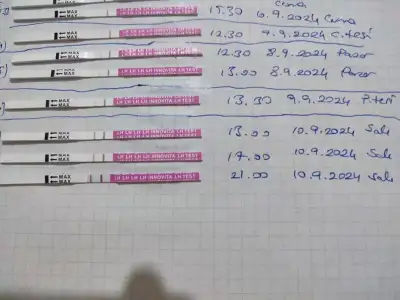 Cuma
15.30 6.9.2024 Cuma
MAX LH LH LH LH INNOVITA LH TEST
12.30 7.9.2024 C.tesi
MAX MAX LH LH LH LH INNOVITA LH TEST
12.30 8.9.2024 Pazar
MAX MAX LH LH LH LH INNOVITA LH TEST
15.00 8.9.2024 Pazar
MAX MAX LH LH LH LH INNOVITA LH TEST
13.30 9.9.2024 P.tesi
MAX MAX LH LH LH LH INNOVITA LH TEST
13.00 10.9.2024 Salı
MAX MAX LH LH LH LH INNOVITA LH TEST
17.00 10.9.2024 Salı
MAX MAX LH LH LH LH INNOVITA LH TEST
21.00 10.9.2024 Salı